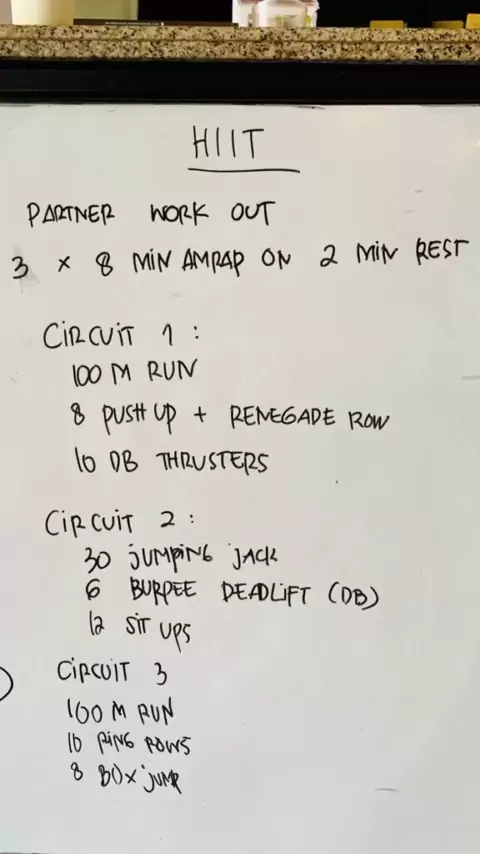 HIIT
PARTNER WORK OUT
3 x 8 MIN AMRAP ON 2 MIN REST
CIRCUIT 1 :
100 M RUN
8 PUSH UP + RENEGADE ROW
10 DB THRUSTERS
CIRCUIT 2 :
30 JUMPING JACK
6 BURPEE DEADLIFT (DB)
12 SIT UPS
CIRCUIT 3
100 M RUN
10 RING ROWS
8 BOX JUMP